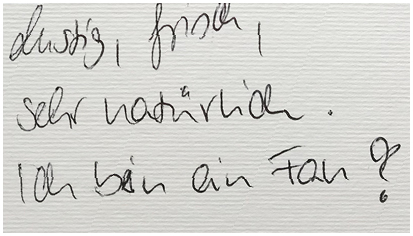 Lustig, frisch,
sehr natürlich.
Ich bin ein Fan?